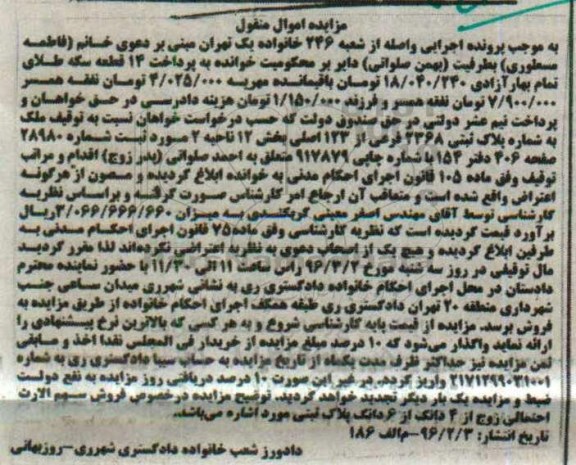 مزایده اموال منقول
به موجب پرونده اجرایی واصله از شعبه ۲۴۶ خانواده یک تهران مبنی بر دعوی خانم (فاطمه
مسطوری) بطرفیت (بهمن صلواتی) دایر بر محکومیت خوانده به پرداخت ۱۴ قطعه سکه طلای
تمام بهار آزادی ۱۸/۰۴۰/۲۴۰ تومان باقیمانده مهریه ۴/۰۲۵/۰۰۰ تومان نفقه همسر
۷/۹۰۰/۰۰۰ تومان نفقه همسر و فرزند ۱/۱۵۰/۰۰۰ تومان هزینه دادرسی در حق خواهان و
پرداخت نیم عشر دولتی در حق صندوق دولت که حسب درخواست خواهان نسبت به توقیف ملک
به شماره پلاک ثبتی ۲۳۶۸ فرعی از ۱۲۳ اصلی بخش ۱۲ ناحیه ۲ مورد ثبت شماره ۲۸۹۸۰
صفحه ۴۰۶ دفتر ۱۵۴ با شماره چاپی ۹۱۷۸۷۹ متعلق به احمد صلواتی (پدر زوج) اقدام و مراتب
توقیف وفق ماده ۱۰۵ قانون اجرای احکام مدنی به خوانده ابلاغ گردیده و مصون از هرگونه
اعتراض واقع شده است و متعاقب آن ارجاع امر کارشناس صورت گرفته و براساس نظریه
کارشناسی توسط آقای مهندس اصغر معینی کریکندی به میزان ۳/۰۶۶/۶۶۶/۶۶۰ ریال
برآورد قیمت گردیده است که نظریه کارشناسی وفق ماده ۷۵ قانون اجرای احکام مدنی به
طرفین ابلاغ گردیده و هیچ یک از اصحاب دعوی به نظریه اعتراضی نکرده‌اند لذا مقرر گردید
مال توقیفی در روز سه شنبه مورخ ۹۶/۳/۲ راس ساعت ۱۱ الی ۱۱/۳۰ با حضور نماینده محترم
دادستان در محل اجرای احکام خانواده دادگستری ری به نشانی شهرری میدان ساعی جنب
شهرداری منطقه ۲۰ تهران دادگستری ری طبقه همکف اجرای احکام خانواده از طریق مزایده به
فروش برسد. مزایده از قیمت پایه کارشناسی شروع و به هر کسی که بالاترین نرخ پیشنهادی را
ارائه نماید واگذار می‌شود که ۱۰ درصد مبلغ مزایده از خریدار فی المجلس نقدا اخذ و مابقی
ثمن مزایده نیز حداکثر ظرف مدت یکماه از تاریخ مزایده به حساب سیبا دادگستری ری به شماره
۲۱۷۱۲۹۹۰۳۱۰۰۱ واریز گردد. در غیر این صورت ۱۰ درصد دریافتی روز مزایده به نفع دولت
ضبط و مزایده یک بار دیگر تجدید خواهد گردید. توضیح مزایده درخصوص فروش سهم الارث
احتمالی زوج از ۴ دانگ از ۶ دانگ پلاک ثبتی مورد اشاره می‌باشد.
تاریخ انتشار: ۹۶/۲/۳-م/الف ۱۸۶
دادورز شعب خانواده دادگستری شهرری-روزبهانی